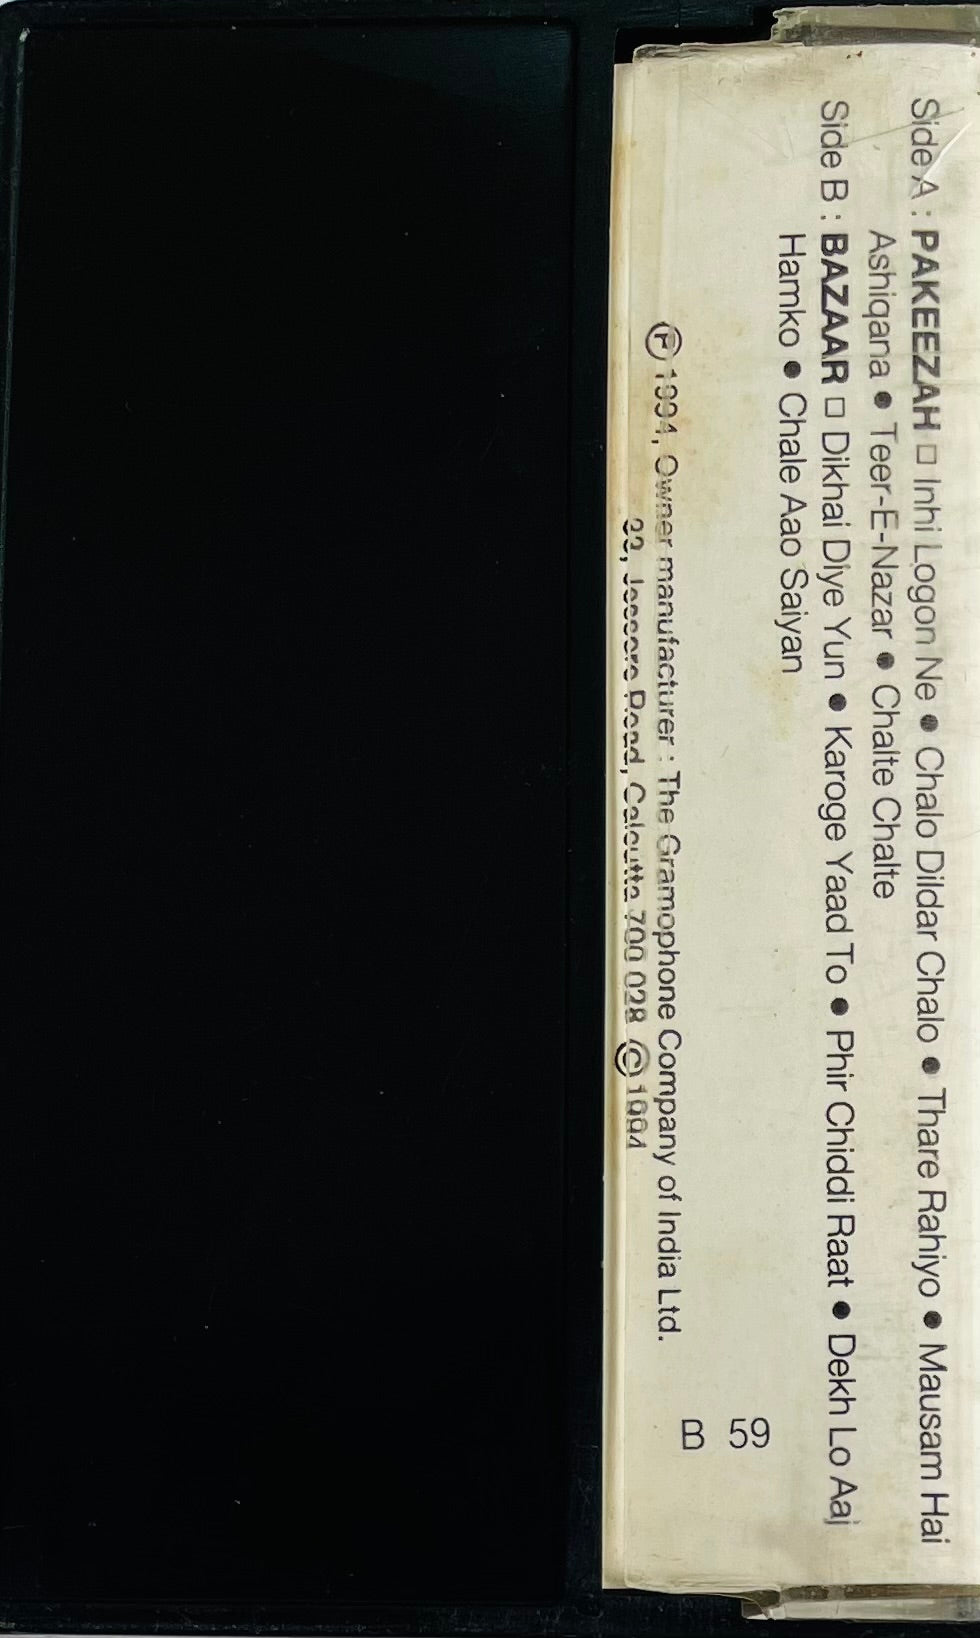 Side A : PAKEEZAH □ Inhi Logon Ne ● Chalo Dildar Chalo ● Thare Rahiyo ● Mausam Hai
Ashiqana ● Teer-E-Nazar ● Chalte Chalte
Side B : BAZAAR □ Dikhai Diye Yun ● Karoge Yaad To ● Phir Chiddi Raat ● Dekh Lo Aaj
Hamko ● Chale Aao Saiyan
59
B
℗ 1994, Owner manufacturer : The Gramophone Company of India Ltd.
33, Jessore Road, Calcutta 700 028 © 1994